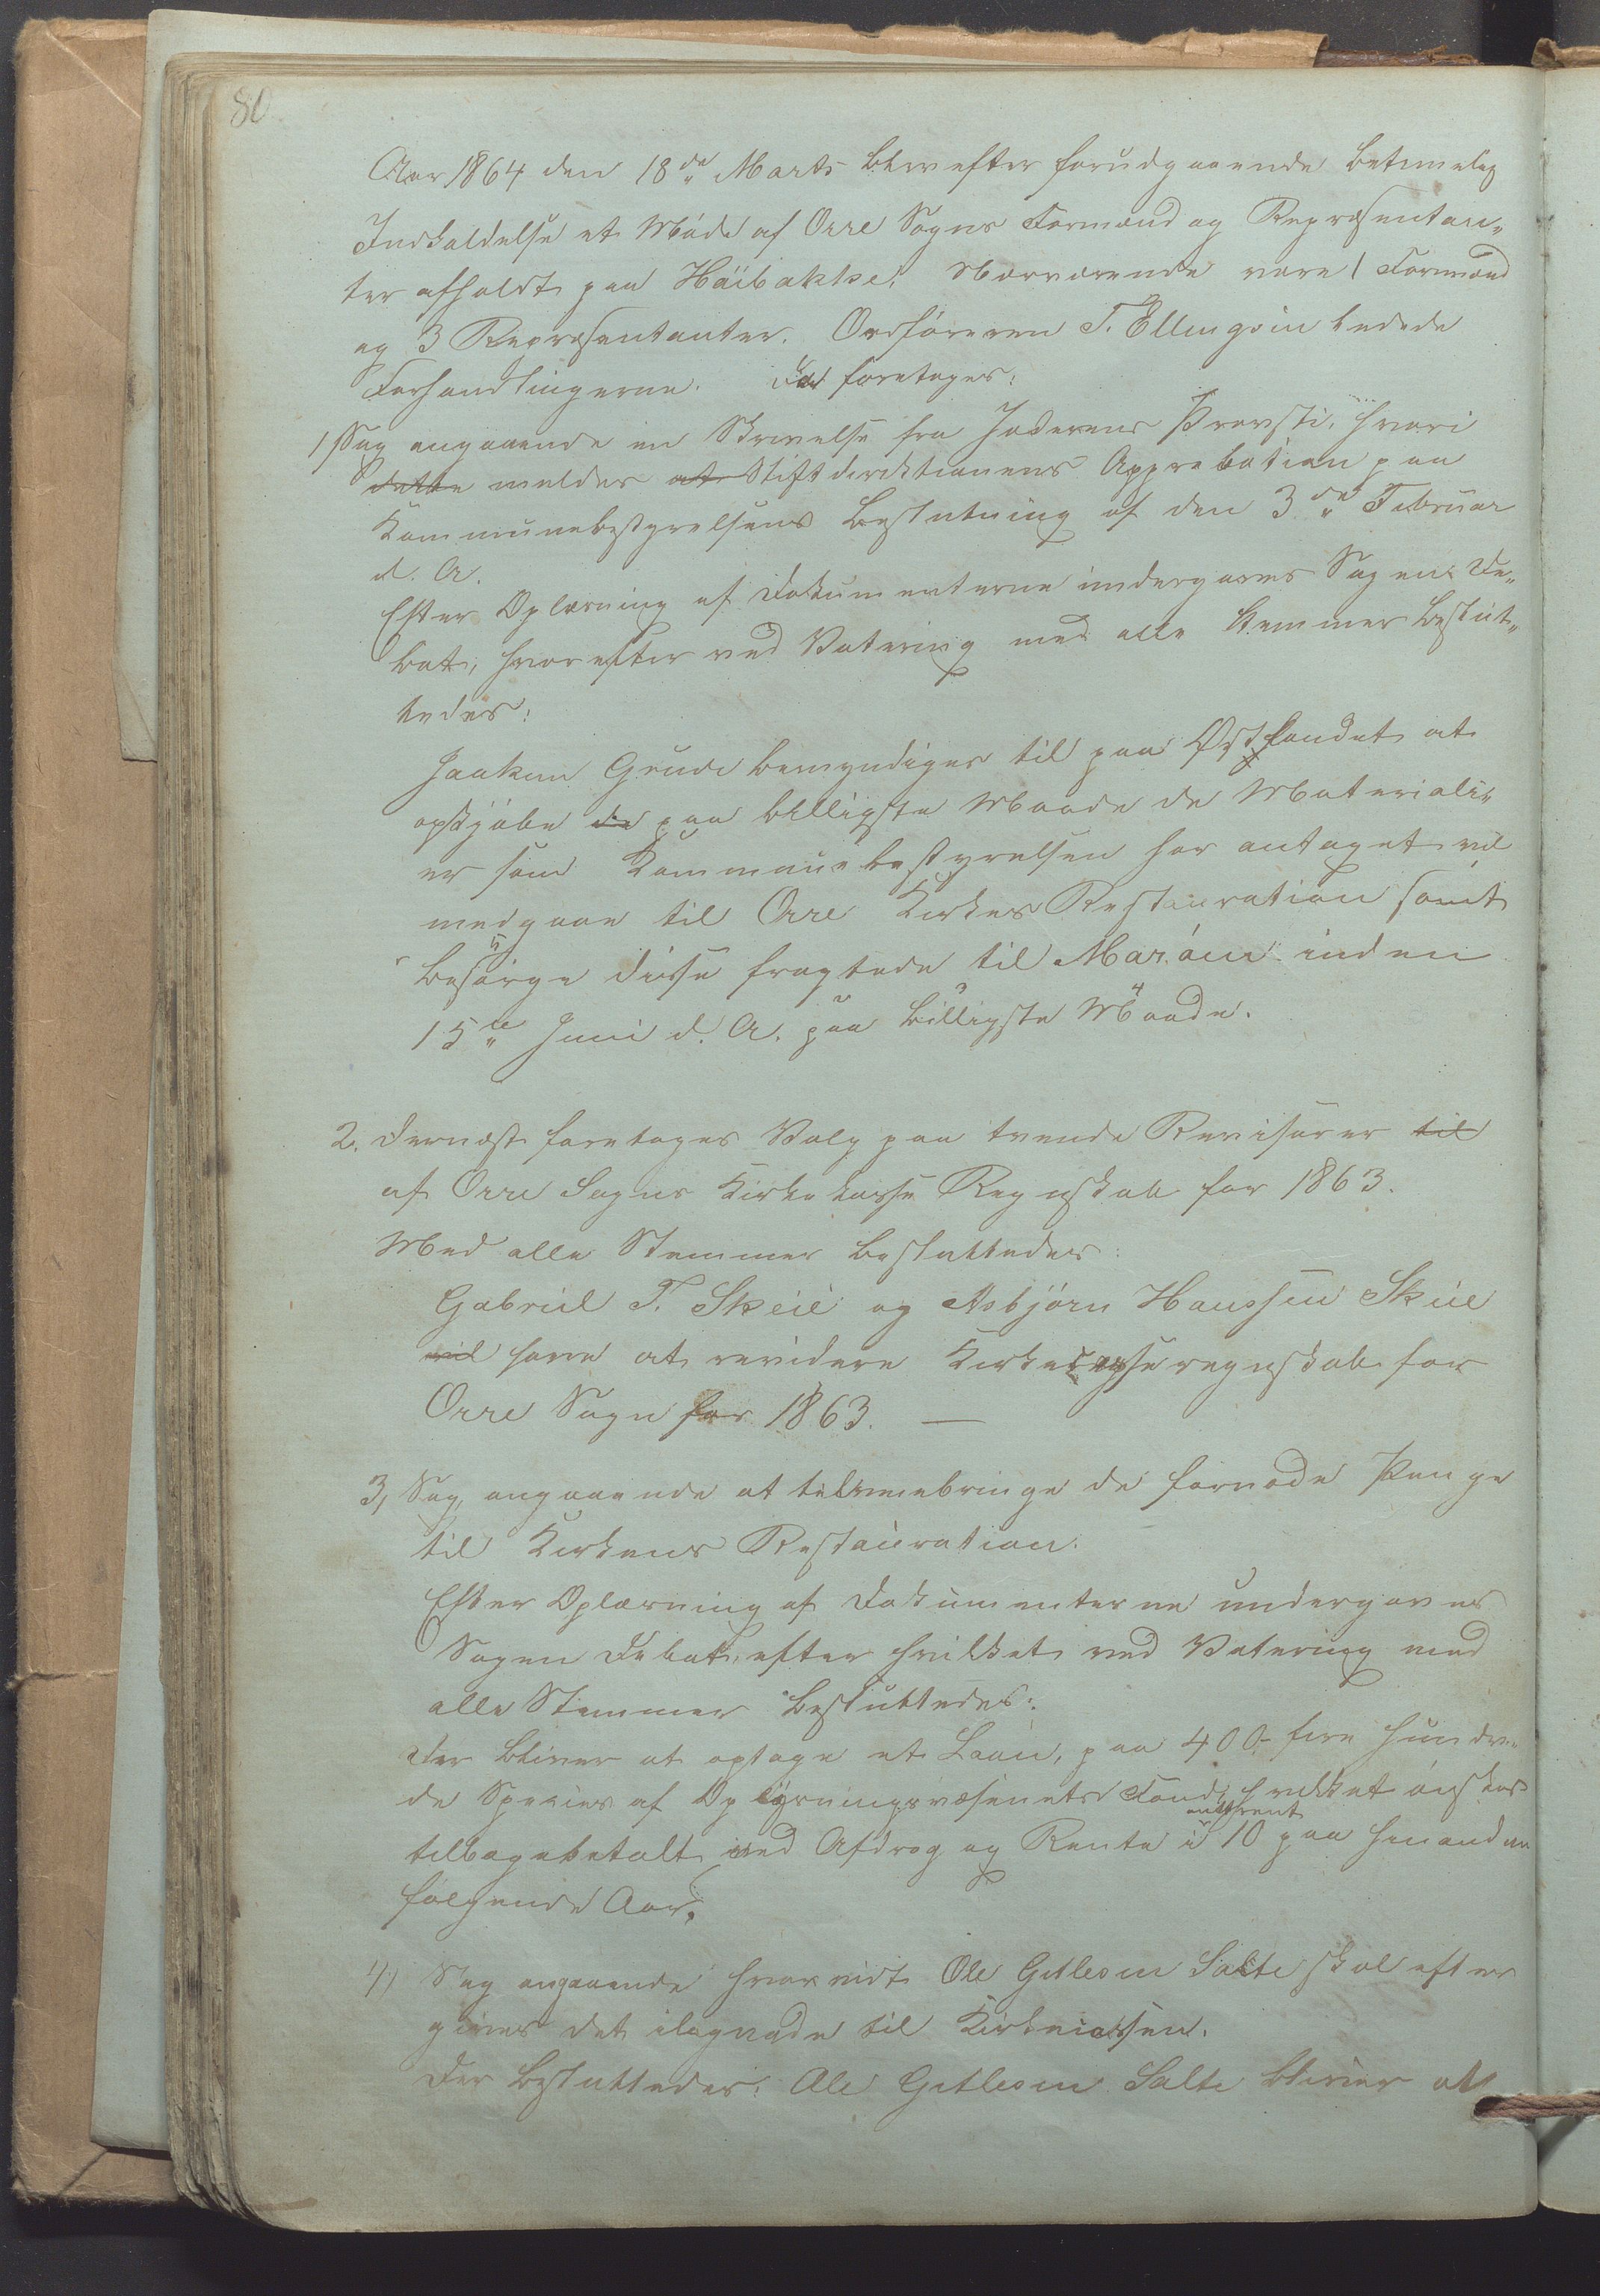 80
Aar 1864 den 18de Marts blev efter forudgaaende betimelig
Indkaldelse et Møde af Orre Sogns Formænd og Repræsentan„
ter afholdt paa Häibakke. Nærværende vare 1 Formænd
og 3 Repræsentanter. Ordføreren T. Ellingsen ledede
Forhandlingerne. Da foretages:
1) Sag angaaende en Skrivelse fra Jæderens Provsti, hvori
dette meldes at Stiftdirektionens Approbation paa
Kommunebestyrelsens Beslutning af den 3de Februar
d. A.
Efter Oplæsning af Dokumenterne undergaves Sagen De„
bat, hvorefter ved Votering med alle Stemmer beslut„
tedes:
Jaakim Grude bemyndiges til paa Østlandet at
opkjøbe de paa billigste Maade de Materiali„
er som Kommunebestyrelsen har antaget vil
medgaae til Orre Kirkes Restauration samt
besørge disse fragtede til inden
15de Juni d. A. paa billigste Maade.
2. Dernæst foretages Valg paa tvende Revisorer til
af Orre Sogns Kirkekasse Regnskab for 1863.
Med alle Stemmer besluttedes:
Gabriel T. Skeie og Asbjørn Hanssen Skeie
vil have at revidere Kirkekasseregnskab for
Orre Sogn for 1863. —
3, Sag, angaaende at tilveiebringe de fornødne Penge
til Kirkens Restauration.
Efter Oplæsning af Dokumenterne undergaves
Sagen Debat, efter hvilket ved Votering med
alle Stemmer besluttedes:
Der bliver at optage et Laan, paa 400 fire hundre„
de Species af Oplysningsvæsenets Fond, hvilket ønskes
tilbagebetalt med Afdrag og Rente i 10 paa hinanden
følgende Aar.
4) Sag angaaende hvorvidt Ole Gitlesen Salte skal efter
gives det ilignede til Kirkekassen.
Der besluttedes: Ole Gitlesen Salte bliver at